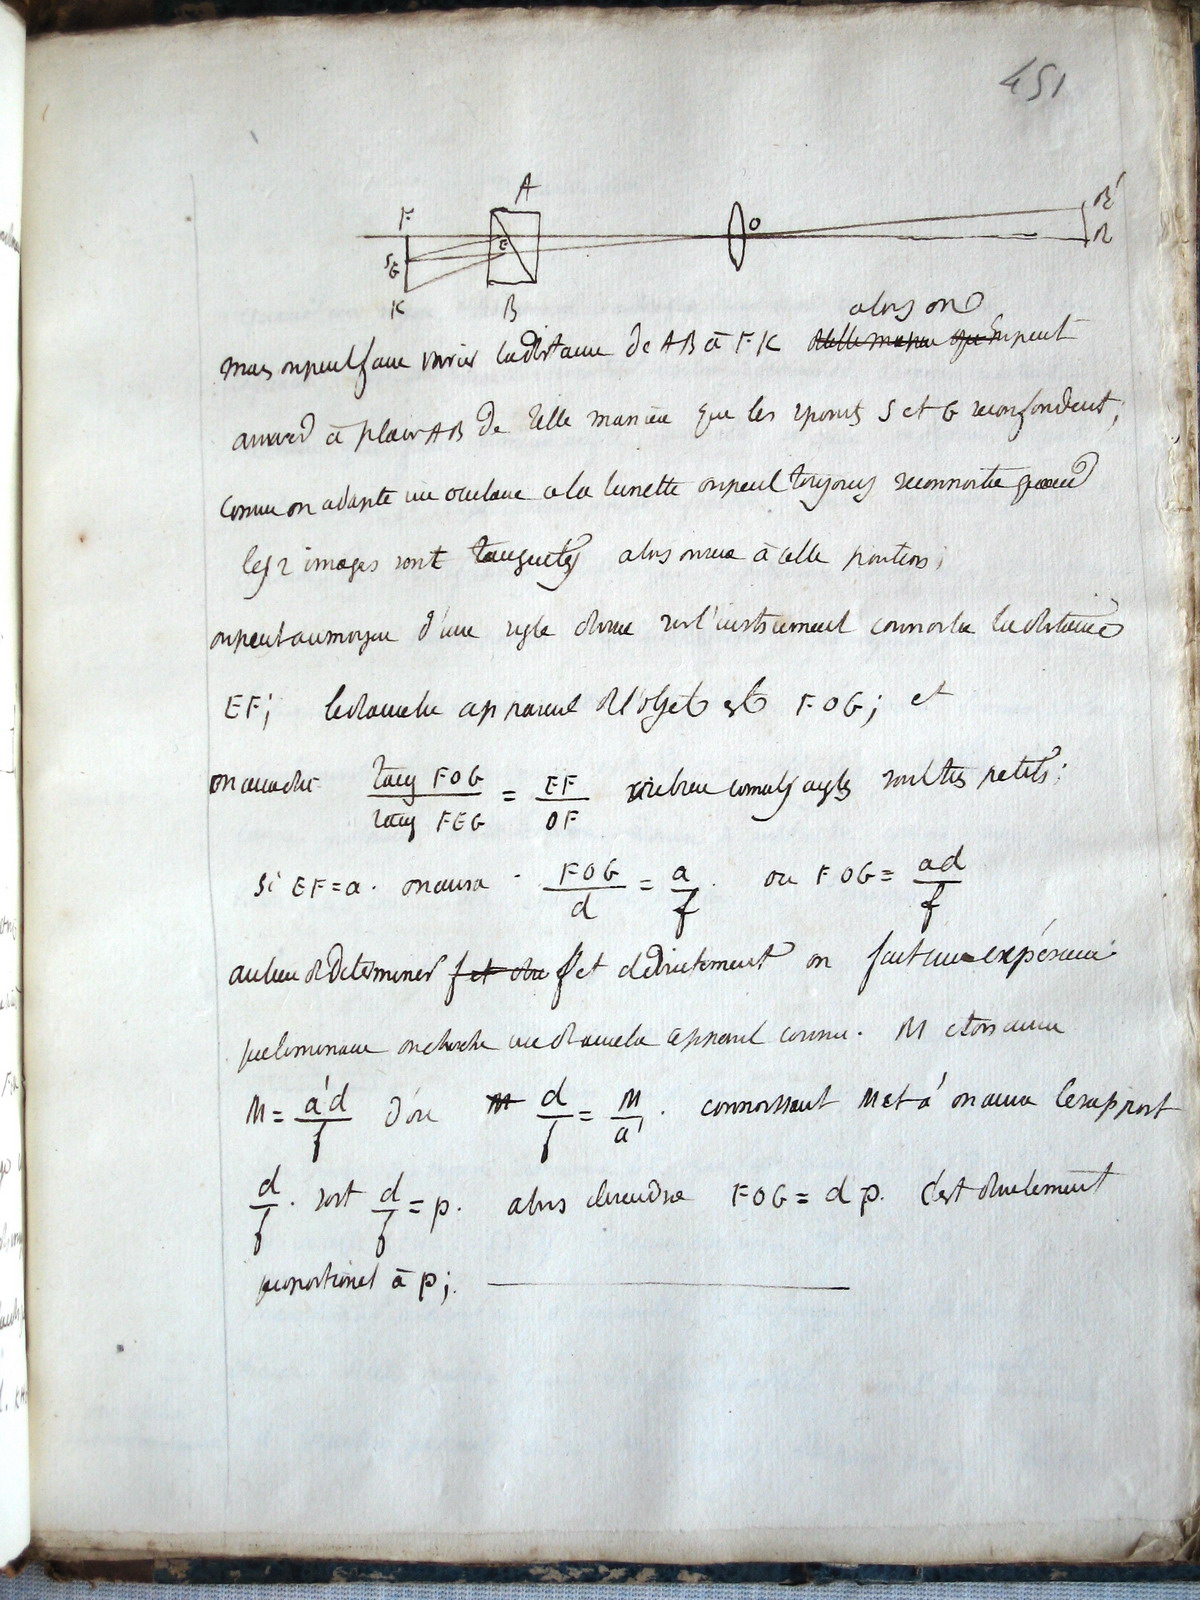 451
A
F
R'
O
E
R
S
G
K
B
alors on
mais on peut faire varier la distance de AB à FK de telle maniere que peut
arriver à placer AB de telle manière que les 2 points S et G se confondent;
comme on adapte un oculaire a la lunette on peut toujours reconnoitre quand
les 2 images sont tangentes alors on sera à cette position;
on peut au moyen d'une regle divisée sur l'instrument connoitre la distance
EF; le diametre apparent de l'objet est FOG; et
on aura donc tang FOG / tang FEG = EF / OF ou bien comme les angles sont très petits;
si EF = a. on aura FOG / d = a / f. ou FOG = ad / f
au lieu de determiner f et d f et d directement on fait une expérience
preliminaire on cherche un diametre apparent connu. M et on aura
M = a'd / f d'où M d / f = M / a'. connoissant M et a' on aura le rapport
d / f. soit d / f = p. alors FOG = d p. c'est directement
proportionel à p;